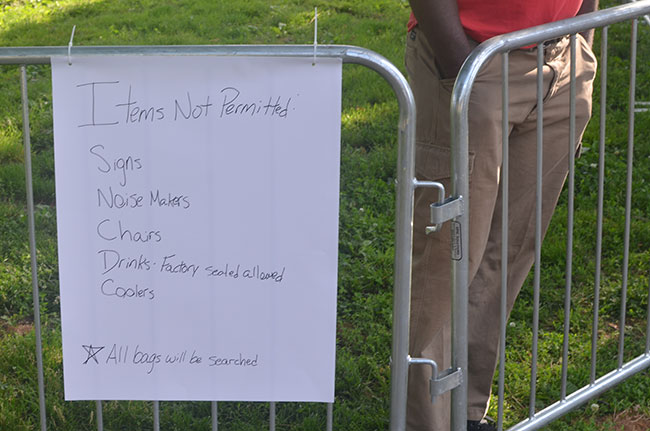 Items Not Permitted:
Signs
Noise Makers
Chairs
Drinks - Factory sealed allowed
Coolers
☆ All bags will be searched